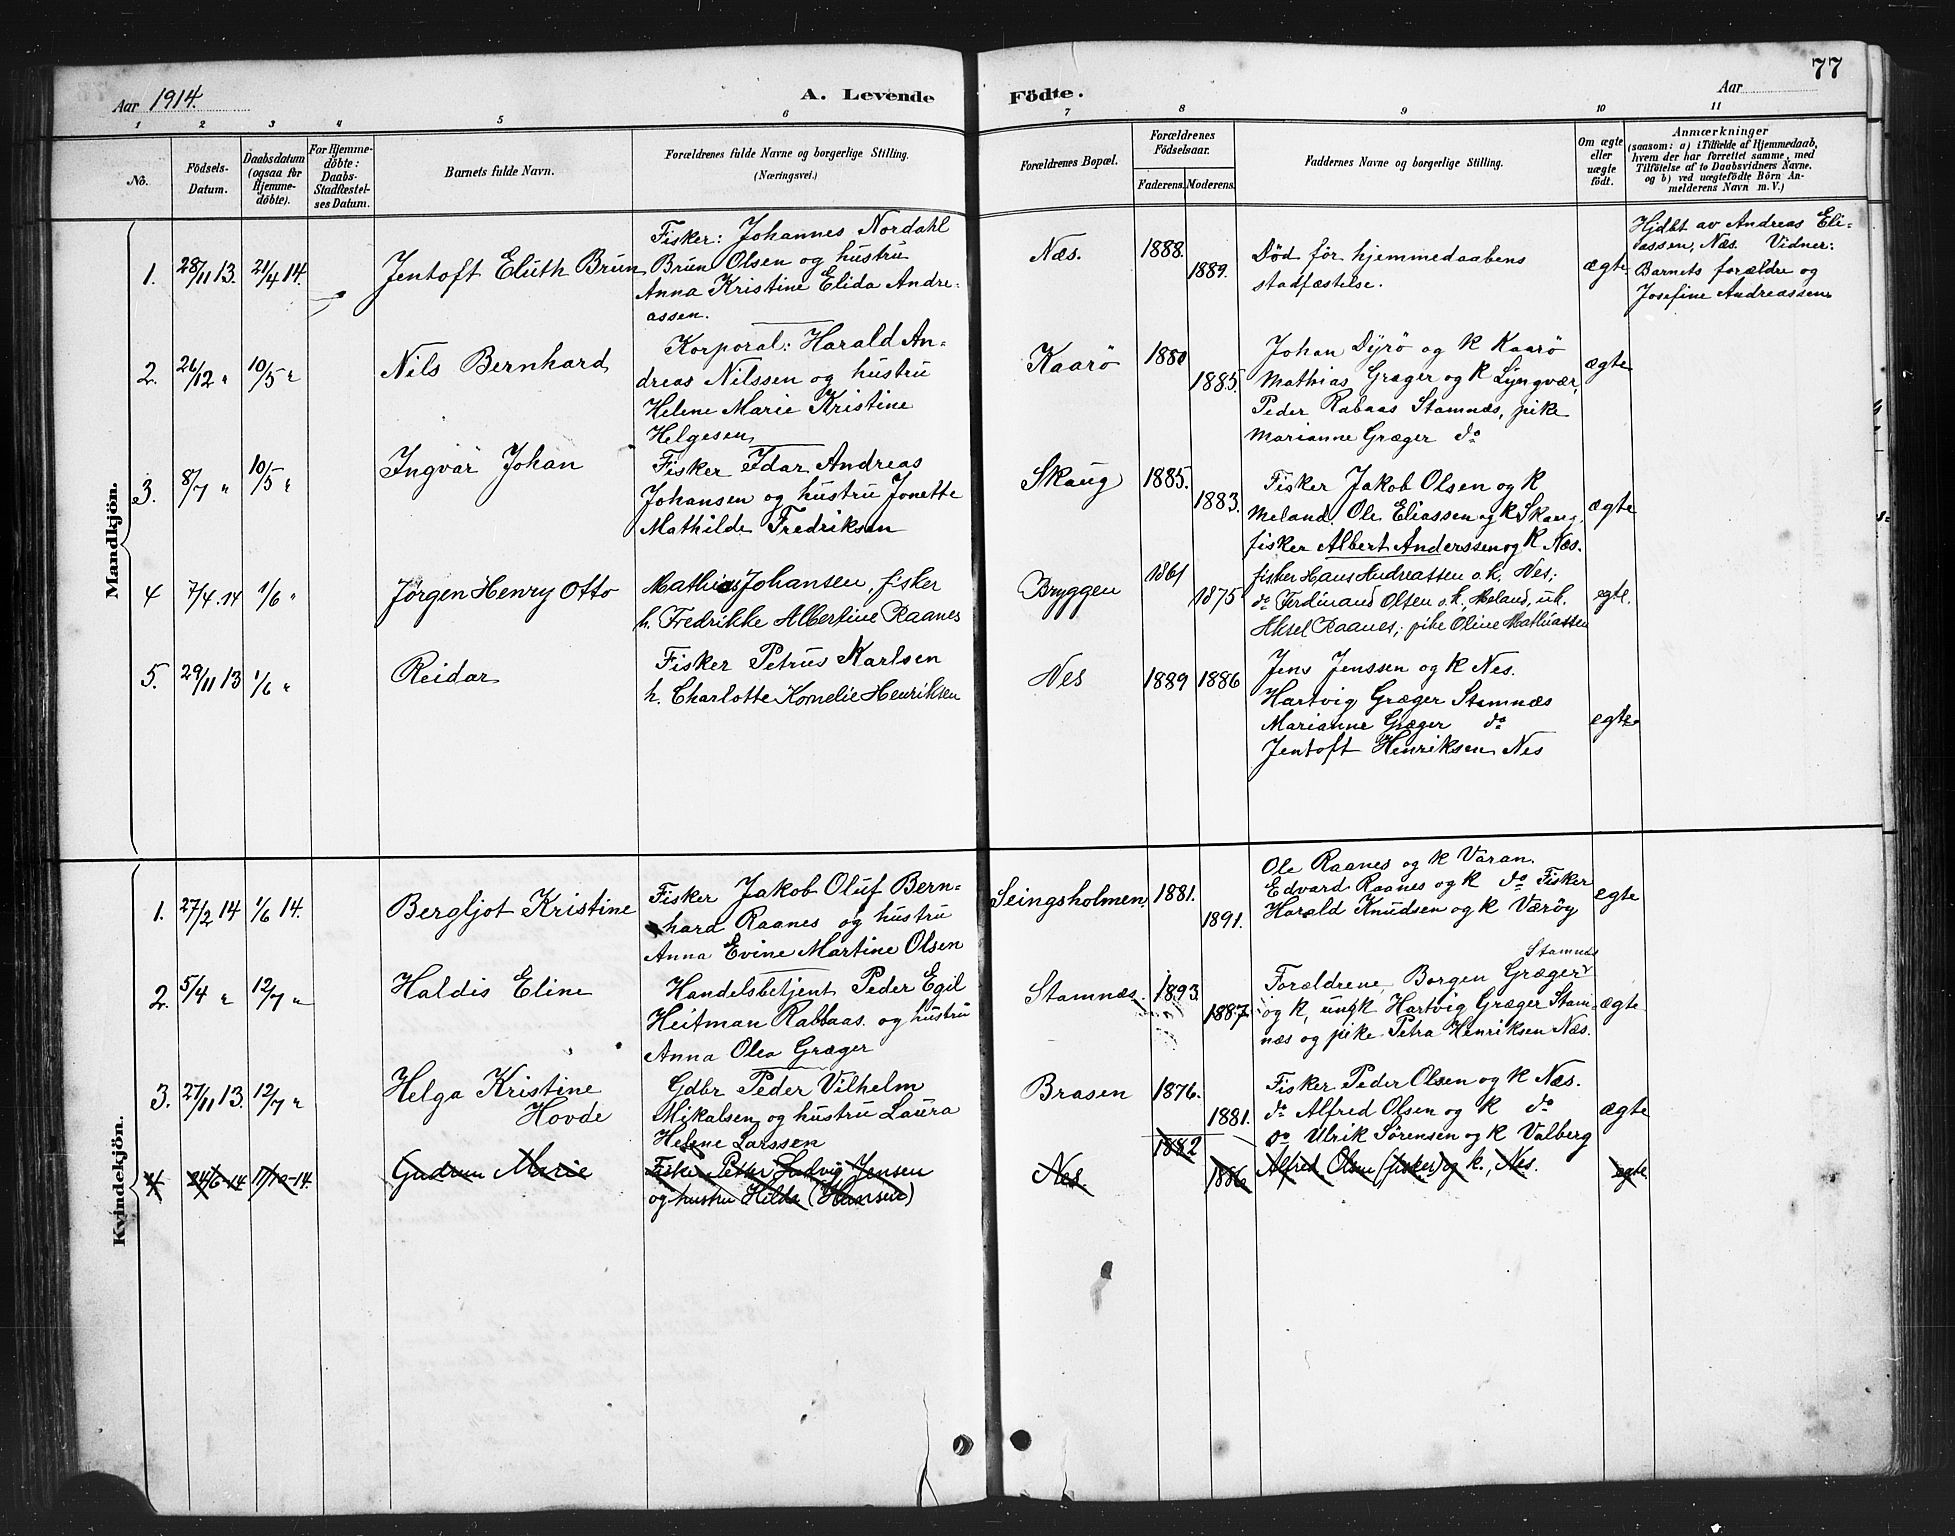 77
Aar 1914.
A. Levende Födte.
Aar
1 2 3 4 5 6 7 8 9 10 11
No.
Födsels-
Datum.
Daabsdatum
(ogsaa for
Hjemme-
döbte).
For Hjemme-
döbte:
Daabs-
Stadfæstel-
ses Datum.
Barnets fulde Navn.
Forældrenes fulde Navne og borgerlige Stilling.
(Næringsvei.)
Forældrenes Bopæl.
Forældrenes
Födselsaar.
Faderens. Moderens.
Faddernes Navne og borgerlige Stilling.
Om ægte
eller
uægte
födt.
Anmærkninger
(saasom: a) i Tilfælde af Hjemmedaab,
hvem der har forrettet samme, med
Tilföielse af to Daabsvidners Navne.
og b) ved uægtefödte Börn An-
melderens Navn m. V.)
Mandkjön.
1. 28/11 13. 21/4 14. Jentoft Eluth Brun
Fisker: Johannes Nordahl
Brun Olsen og hustru
Anna Kristine Elida Andre-
assen.
Næs. 1888. 1889.
Død før hjemmedaabens
stadfæstelse.
ægte
Hjdbt av Andreas Eli-
assen, Næs. Vidner:
Barnets forældre og
Josefine Andreassen
2. 26/12 " 10/5 " Nils Bernhard
Korporal: Harald An-
dreas Nilssen og hustru
Helene Marie Kristine
Helgesen
Kaarø 1880 1885.
Johan Dyrø og K Kaarø
Mathias Græger og K Lyngvær,
Peder Rabaas Stamnæs, pike
Marianne Græger do
ægte
3. 8/7 " 10/5 " Ingvar Johan
Fisker Idar Andreas
Johansen og hustru Jonette
Mathilde Fredriksen
Skaug 1885. 1883.
Fisker Jakob Olsen og K
Meland. Ole Eliassen og K Skaug,
fisker Albert Anderssen og K Næs.
ægte
4 7/4 14 1/6 " Jørgen Henry Otto
Mathias Johansen, fisker
h. Fredrikke Albertine Raanes
Bryggen 1861 1875
fisker Hans Andreassen o. k., Nes;
do Ferdinand Olsen o. k., Meland, uk.
Aksel Raanes; pike Oline Mathiassen
egte.
5. 29/11 13 1/6 " Reidar
Fisker Petrus Karlsen
h. Charlotte Kornelie Henriksen
Nes 1889 1886
Jens Jenssen og K Nes.
Hartvig Græger Stamnæs
Marianne Græger do
Jentoft Henriksen Nes
egte
Kvindekjön.
1. 27/2 14 1/6 14. Bergljot Kristine
Fisker Jakob Oluf Bern-
hard Raanes og hustru
Anna Evine Martine Olsen
Seingsholmen. 1881. 1891.
Ole Raanes og K Varan.
Edvard Raanes og K do Fisker
Harald Knudsen og K Værøy
egte
2. 5/4 " 12/7 " Haldis Eline
Handelsbetjent Peder Egil
Heitman Rabbaas og hustru
Anna Olea Græger
Stamnæs. 1893. 1887
Stamnæs
Forældrene, Borgen Græger
og K, ungk Hartvig Græger Stam-
næs og pike Petra Henriksen Næs.
ægte
3. 27/11 13. 12/7 " Helga Kristine
Hovde
Gdbr Peder Vilhelm
Mikalsen og hustru Laura
Helene Larssen
Brasen 1876. 1881.
Fisker Peder Olsen og K Næs.
do Alfred Olsen og K do
do Ulrik Sørensen og K Valberg
ægte
4 24/6-14 11/10-14. Gudrun Marie
Fisker Peter Ludvig Jensen
og hustru Hilda (Hansen)
Nes. 1882 1886
Alfred Olsen (fisker) og k., Nes.
egte